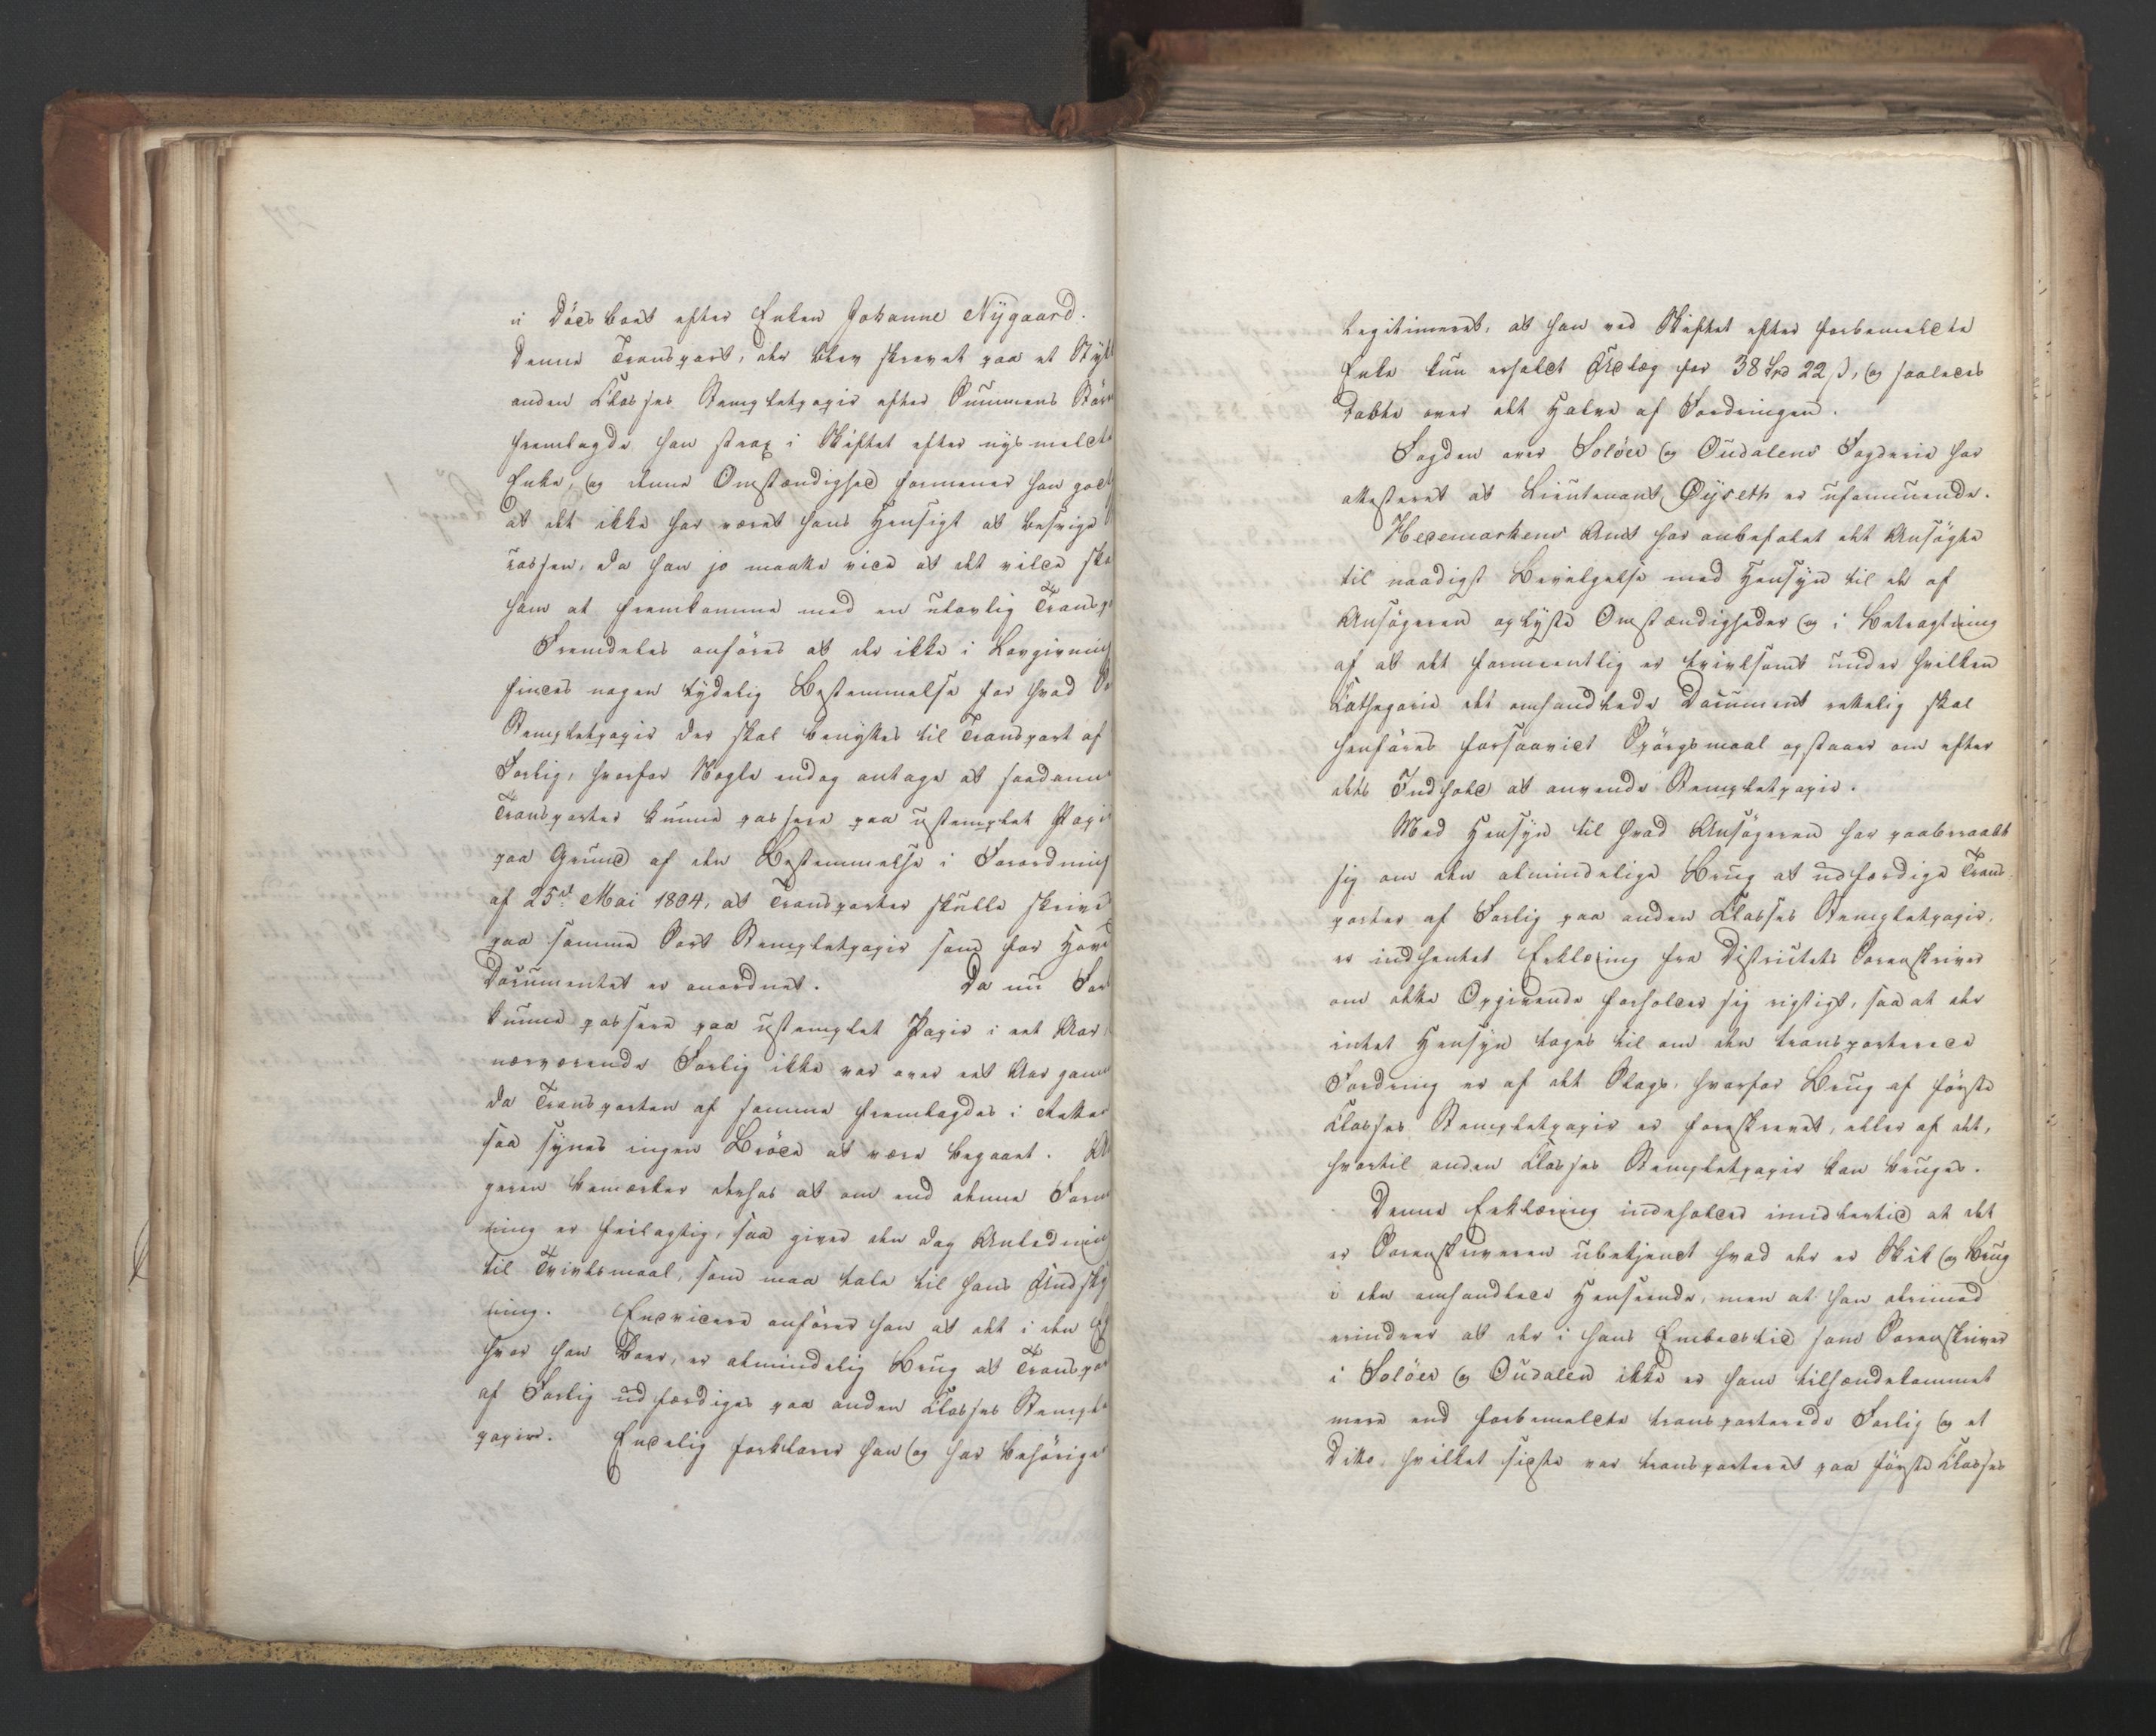 i Döds boet efter Enken Johanne Nÿgaard.
Denne Transport, der blev skrevet paa et Stÿk
anden Classes Stempletpapir efter Summens Stör
fremlagde han strax i Skiftet efter nÿsmeldte
Enke, og denne Omstændighed formener han godt
at det ikke har været hans Hensigt at besvige
cassen, da han jo maatte vide at det vilde ska
ham at fremkomme med en ulovlig Transp
Fremdeles anföres at der ikke i Lovgivning
findes nogen tÿdelig Bestemmelse for hvad So
Stempletpapir der skal benÿttes til Transport af
Forlig, hvorfor Nogle endog antage at saadanne
Transporter kunne passere paa ustemplet Papir
paa Grund af den Bestemmelse i Forordning
af 25de Mai 1804, at Transporter skulle skrive
paa samme Sort Stempletpapir som for Hoved
Documentet er anordnet. Da nu For
kunne passere paa ustemplet Papir i eet Aar,
nærværende Forlig ikke var over eet Aar gam
da Transporten af samme fremlagdes i Retten
saa sÿnes ingen Bröde at være begaaet. An
geren bemærker derhos at om end denne Form
ning er feilagtig, saa giver den dog Anledning
til Tvivlsmaal, som maa tale til hans Undskÿ
ning. Endvidere anförer han at det i den
hvor han boer, er almindelig Brug at Transpor
af Forlig udfærdiges paa anden Classes Stemplet
papir. Endelig forklarer han og har behörigen
legitimeret, at han ved Skiftet efter forbemeldte
Enke kun erholdt Udlæg for 38 Spd 22 ß, og saaledes
tabte over det Halve af Fordringen.
Fogden over Solöer og Oudalens Fogderie har
attesteret at Lieutenant Øÿseth er uformuende.
Hedemarkens Amt har anbefalet det Ansögte
til naadigst Bevilgelse med Hensÿn til de af
Ansögeren oplÿste Omstændigheder og i Betragtning
af at det formeentlig er tvivlsomt under hvilken
Cathegorie det omhandlede Document rettelig skal
henföres forsaavidt Spörgsmaal opstaaer om efter
dets Indhold at anvende Stempletpapir.
Med Hensÿn til hvad Ansögeren har paaberaabt
sig om den almindelige Brug at udfærdige Trans
porter af Forlig paa anden Classes Stempletpapir,
er indhentet Erklæring fra Districtets Sorenskriver
om dette Opgivende forholder sig rigtigt, saa at der
intet Hensÿn tages til om den transporterede
Fordring er af det Slags, hvorfor Brug af förste
Classes Stempletpapir er foreskrevet, eller af det,
hvortil anden Classes Stempletpapir kan bruges.
Denne Erklæring indeholder imidlertid at det
er Sorenskriveren ubekjendt hvad der er Skik og Brug
i den omhandlede Henseende, men at han derimod
erindrer at der i hans Embedstid som Sorenskriver
i Solöer og Oudalen ikke er ham tilhændekommet
mere end forbemeldte transporterede Forlig og et
Ditto, hvilket sidste var transporteret paa förste Classes